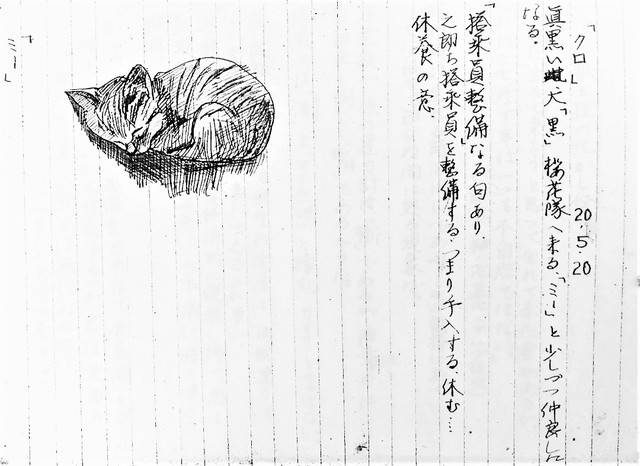 「クロ」 20.5.20
眞黒い雌犬「黒」桜花隊へ来る、「ミー」と少しづつ仲良しに
なる.
「搭乘員整備」なる句あり.
之即ち搭乘員を整備する.つまり手入する.休む…
休養の意.
「ミー」